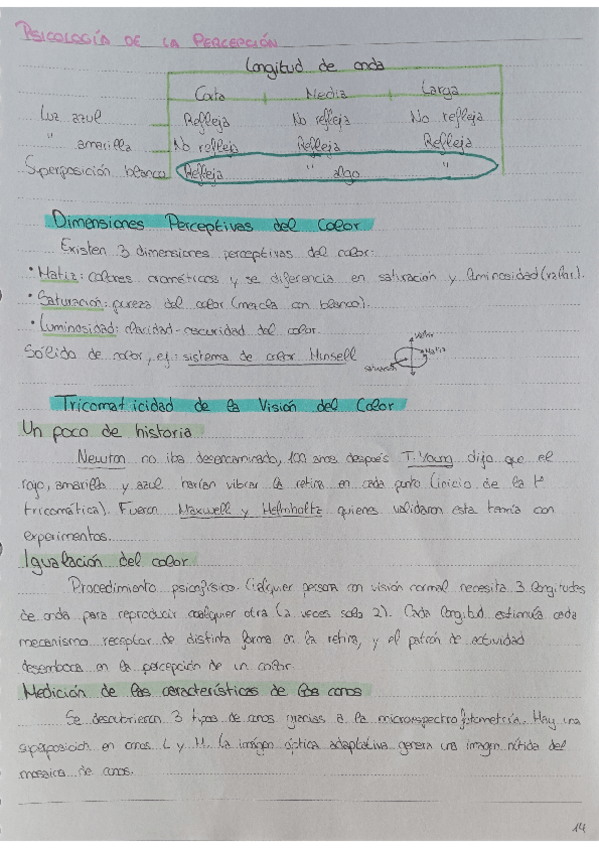 PSICOLOGÍA DE LA PERCEPCIÓN
Longitud de onda
Corta Media Larga
Luz azul Refleja No refleja No refleja
" amarilla No refleja Refleja Refleja
Superposición blanco Refleja " algo "
Dimensiones Perceptivas del Color
Existen 3 dimensiones perceptivas del color:
• Matiz: colores cromáticos y se diferencia en saturación y luminosidad (valor).
• Saturación: pureza del color (mezcla con blanco).
• Luminosidad: claridad-oscuridad del color.
Sólido de color, ej.: sistema de color Munsell
Valor
Matiz
Saturación
Tricomaticidad de la Visión del Color
Un poco de historia
Newton no iba desencaminado, 100 años después T. Young dijo que el
rojo, amarillo y azul harían vibrar la retina en cada punto (inicio de la tª
tricomática). Fueron Maxwell y Helmholtz quienes validaron esta teoría con
experimentos.
Igualación del color
Procedimiento psicofísico. Cualquier persona con visión normal necesita 3 longitudes
de onda para reproducir cualquier otra (a veces solo 2). Cada longitud estimula cada
mecanismo receptor de distinta forma en la retina, y el patrón de actividad
desemboca en la percepción de un color.
Medición de las características de los conos
Se descubrieron 3 tipos de conos gracias a la microespectrofotometría. Hay una
superposición en conos L y M. La imagen óptica adaptativa genera una imagen nítida del
mosaico de conos.
14